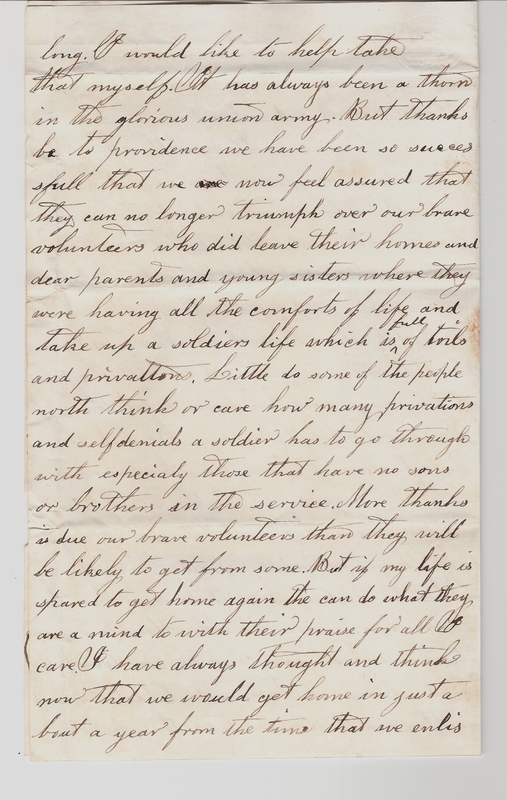 long. I would like to help take
that myself. It has always been a thorn
in the glorious union army. But thanks
be to providence we have been so succes
sfull that we are now feel assured that
they can no longer triumph over our brave
volunteers who did leave their homes and
dear parents and young sisters where they
were having all the comforts of life and
take up a soldiers life which is full of toils
and privations. Little do some of the people
north think or care how many privations
and selfdenials a soldier has to go through
with especialy those that have no sons
or brothers in the service. More thanks
is due our brave volunteers than they will
be likely to get from some. But if my life is
spared to get home again the can do what they
are a mind to with their praise for all I
care. I have always thought and think
now that we would get home in just a
bout a year from the time that we enlis